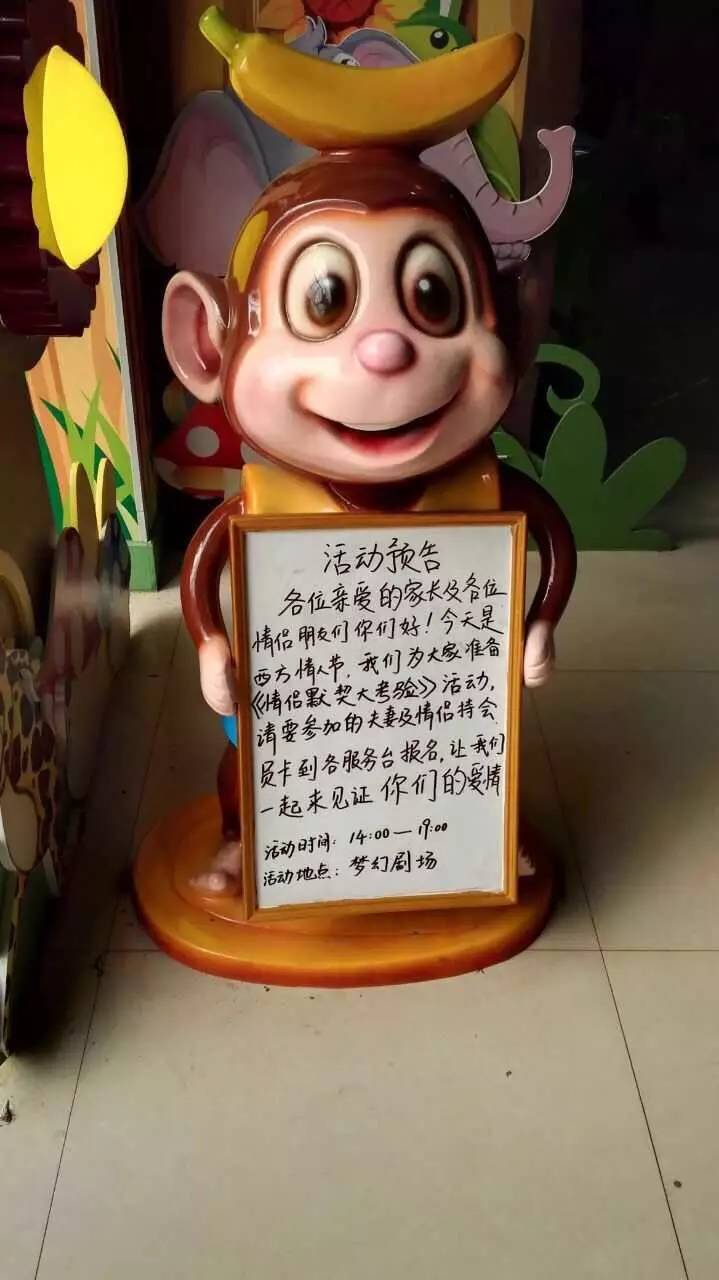 活动预告
各位亲爱的家长及各位
情侣朋友们你们好！今天是
西方情人节，我们为大家准备
《情侣默契大考验》活动，
请要参加的夫妻及情侣持会
员卡到各服务台报名，让我们
一起来见证你们的爱情
活动时间：14:00—19:00
活动地点：梦幻剧场